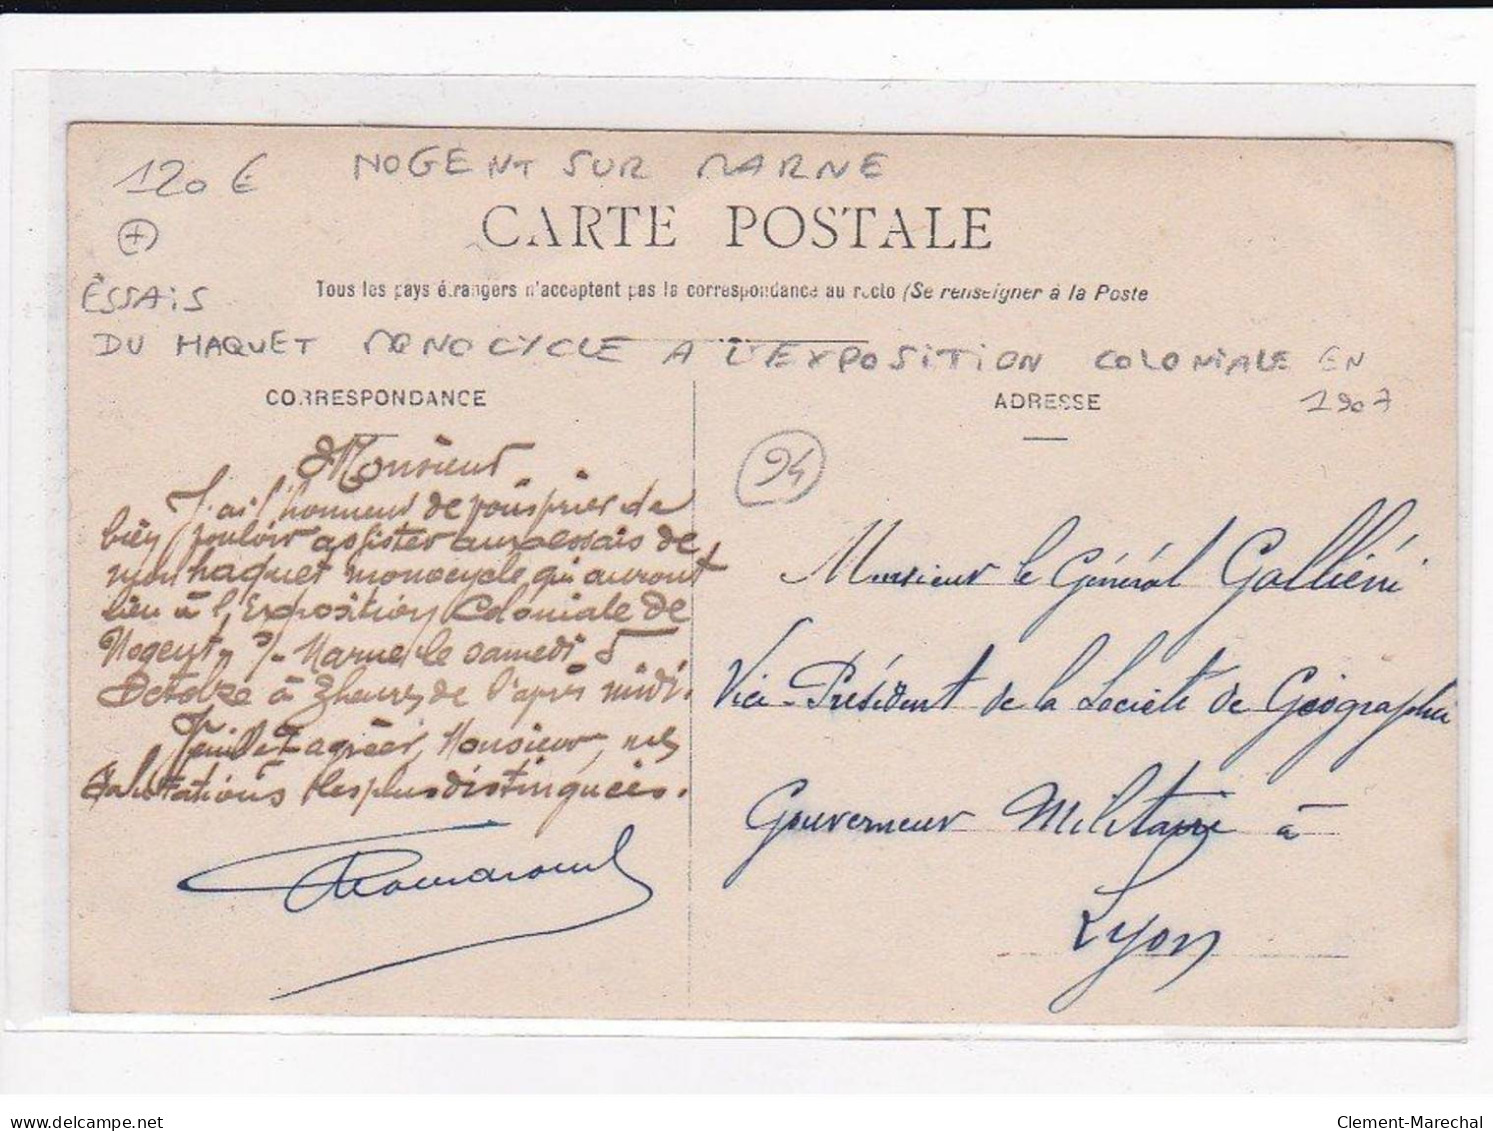 120 € NOGENT SUR MARNE
CARTE POSTALE
+
ESSAIS
Tous les pays étrangers n'acceptent pas la correspondance au recto (Se renseigner à la Poste
DU HAQUET MONOCYCLE A L'EXPOSITION COLONIALE EN
1907
CORRESPONDANCE
Monsieur
J'ai l'honneur de vous prier de
bien pouvoir assister aux essais de
mon haquet monocycle qui auront
lieu à l'Exposition Coloniale de
Nogent s/ Marne le samedi 5
Octobre à 3 heures de l'après midi.
Veuillez agréer, Monsieur, mes
Salutations les plus distinguées.
ADRESSE
94
Monsieur le Général Galliéni
Vice-Président de la Société de Géographie
Gouverneur Militaire à
Lyon
delcampe.net
Clement-Marechal